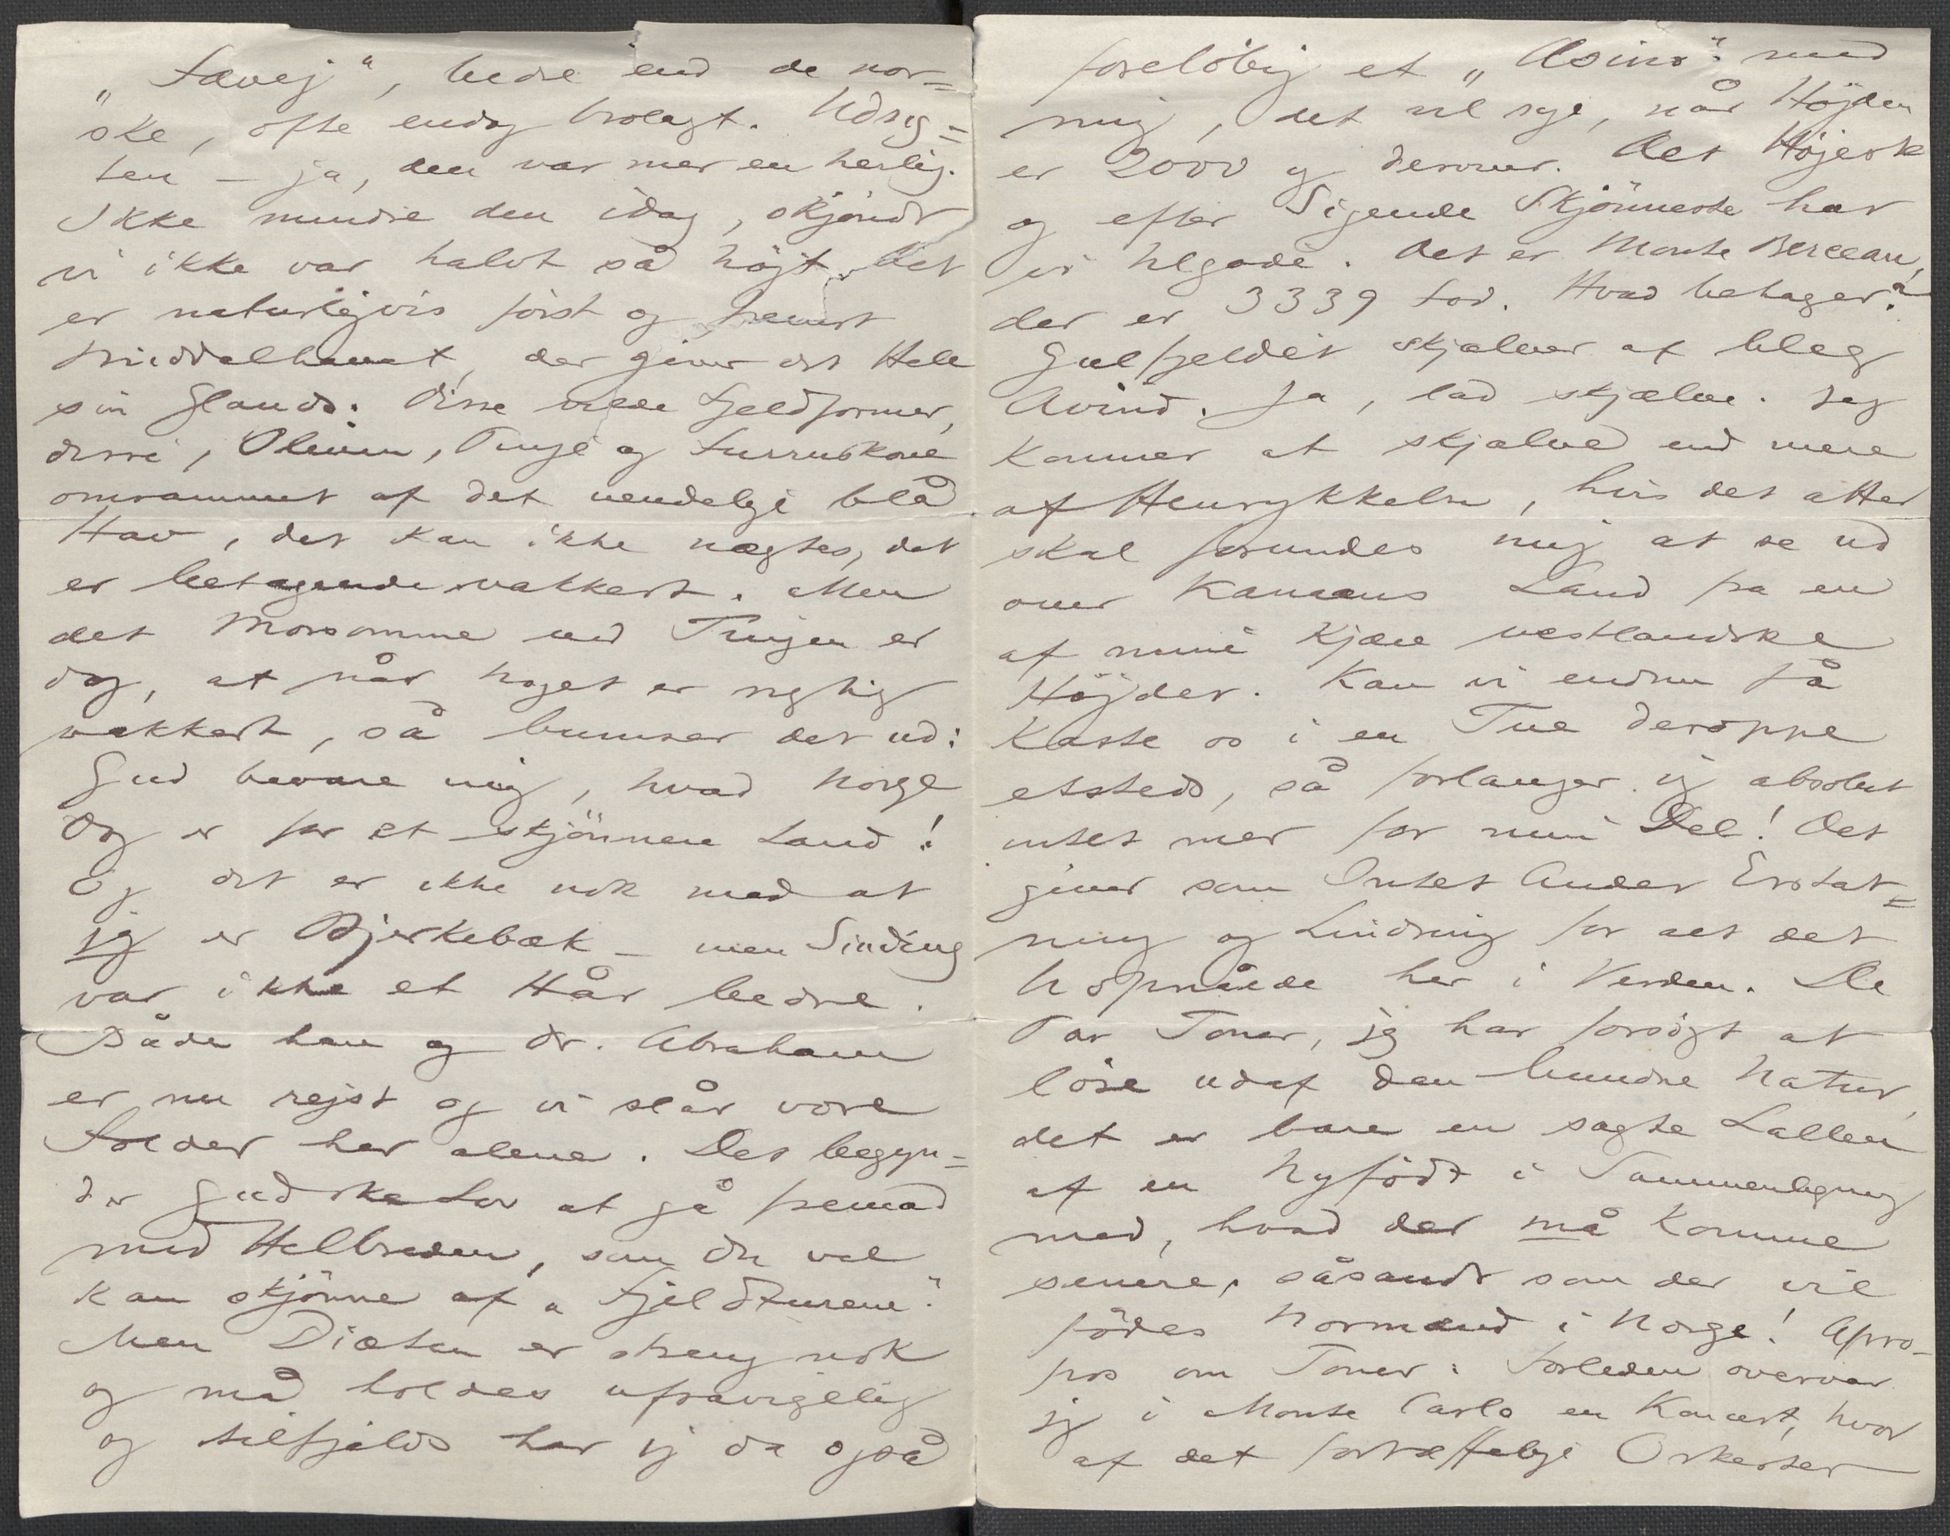 „Sævej“, bedre end de nor=
ske, ofte endog brolagt. Udsig=
ten – ja, den var mer en herlig.
Ikke mindre den idag, skjöndt
vi ikke var halvt så höjt. Det
er naturligvis först og fremst
Middelhavet, der giver det Hele
sin Glands. Disse vilde Fjeldformer,
disse Oliven, Pinje og Furruskove
omrammet af det uendelige blå
Hav, det kan ikke nægtes, det
er betagende vakkert. Men
det Morsomme ved Tingen er
dog, at når noget er rigtig
vakkert, så bumser det ud:
Gud bevare mig, hvad Norge
dog er for et skjönnere Land!
Og det er ikke nok med at
jeg er Bjerkebæk – men Sinding
var ikke et Hår bedre.
Både han og Dr. Abraham
er nu rejst og vi slår vore
Folder her alene. Det begyn=
der Gudskelov at gå fremad
med Helbreden, som Du vel
kan skjönne af „Fjeldturene“.
Men Diæten er streng nok
og må holdes ufravigelig
og tilfjelds har jeg da også
foreløbig et „Asino“ med
mig, det vil sige, når Höjden
er 2000 og derover. Det Höjeste
og efter Sigende Skjönneste har
vi tilgode. Det er Monte Berceau,
der er 3339 Fod. Hvad behager?
Gulfjeldet skjælver af bleg
Avind. Ja, lad skjælve. Jeg
kommer at skjælve end mere
af Henrykkelse, hvis det atter
skal forundes mig at se ud
over Kanaans Land fra en
af mine kjære vestlandske
Höjder. Kan vi endnu få
kaste os i en Tue deroppe
etsteds, så forlanger jeg absolut
intet mer for min Del! Det
giver som Intet Andet Erstat=
ning og Lindring for alt det
Uopnåede her i Verden. De
Par Toner, jeg har forsögt at
löse udaf den bundne Natur,
det er bare en sagte Lallen
af en Nyfödt i Sammenligning
med, hvad der må komme
senere, såsandt som der vil
födes Normænd i Norge! Apro-
pos om Toner: Forleden overvar
jeg i Monte Carlo en Koncert, hvor
af det fortræffelige Orkester